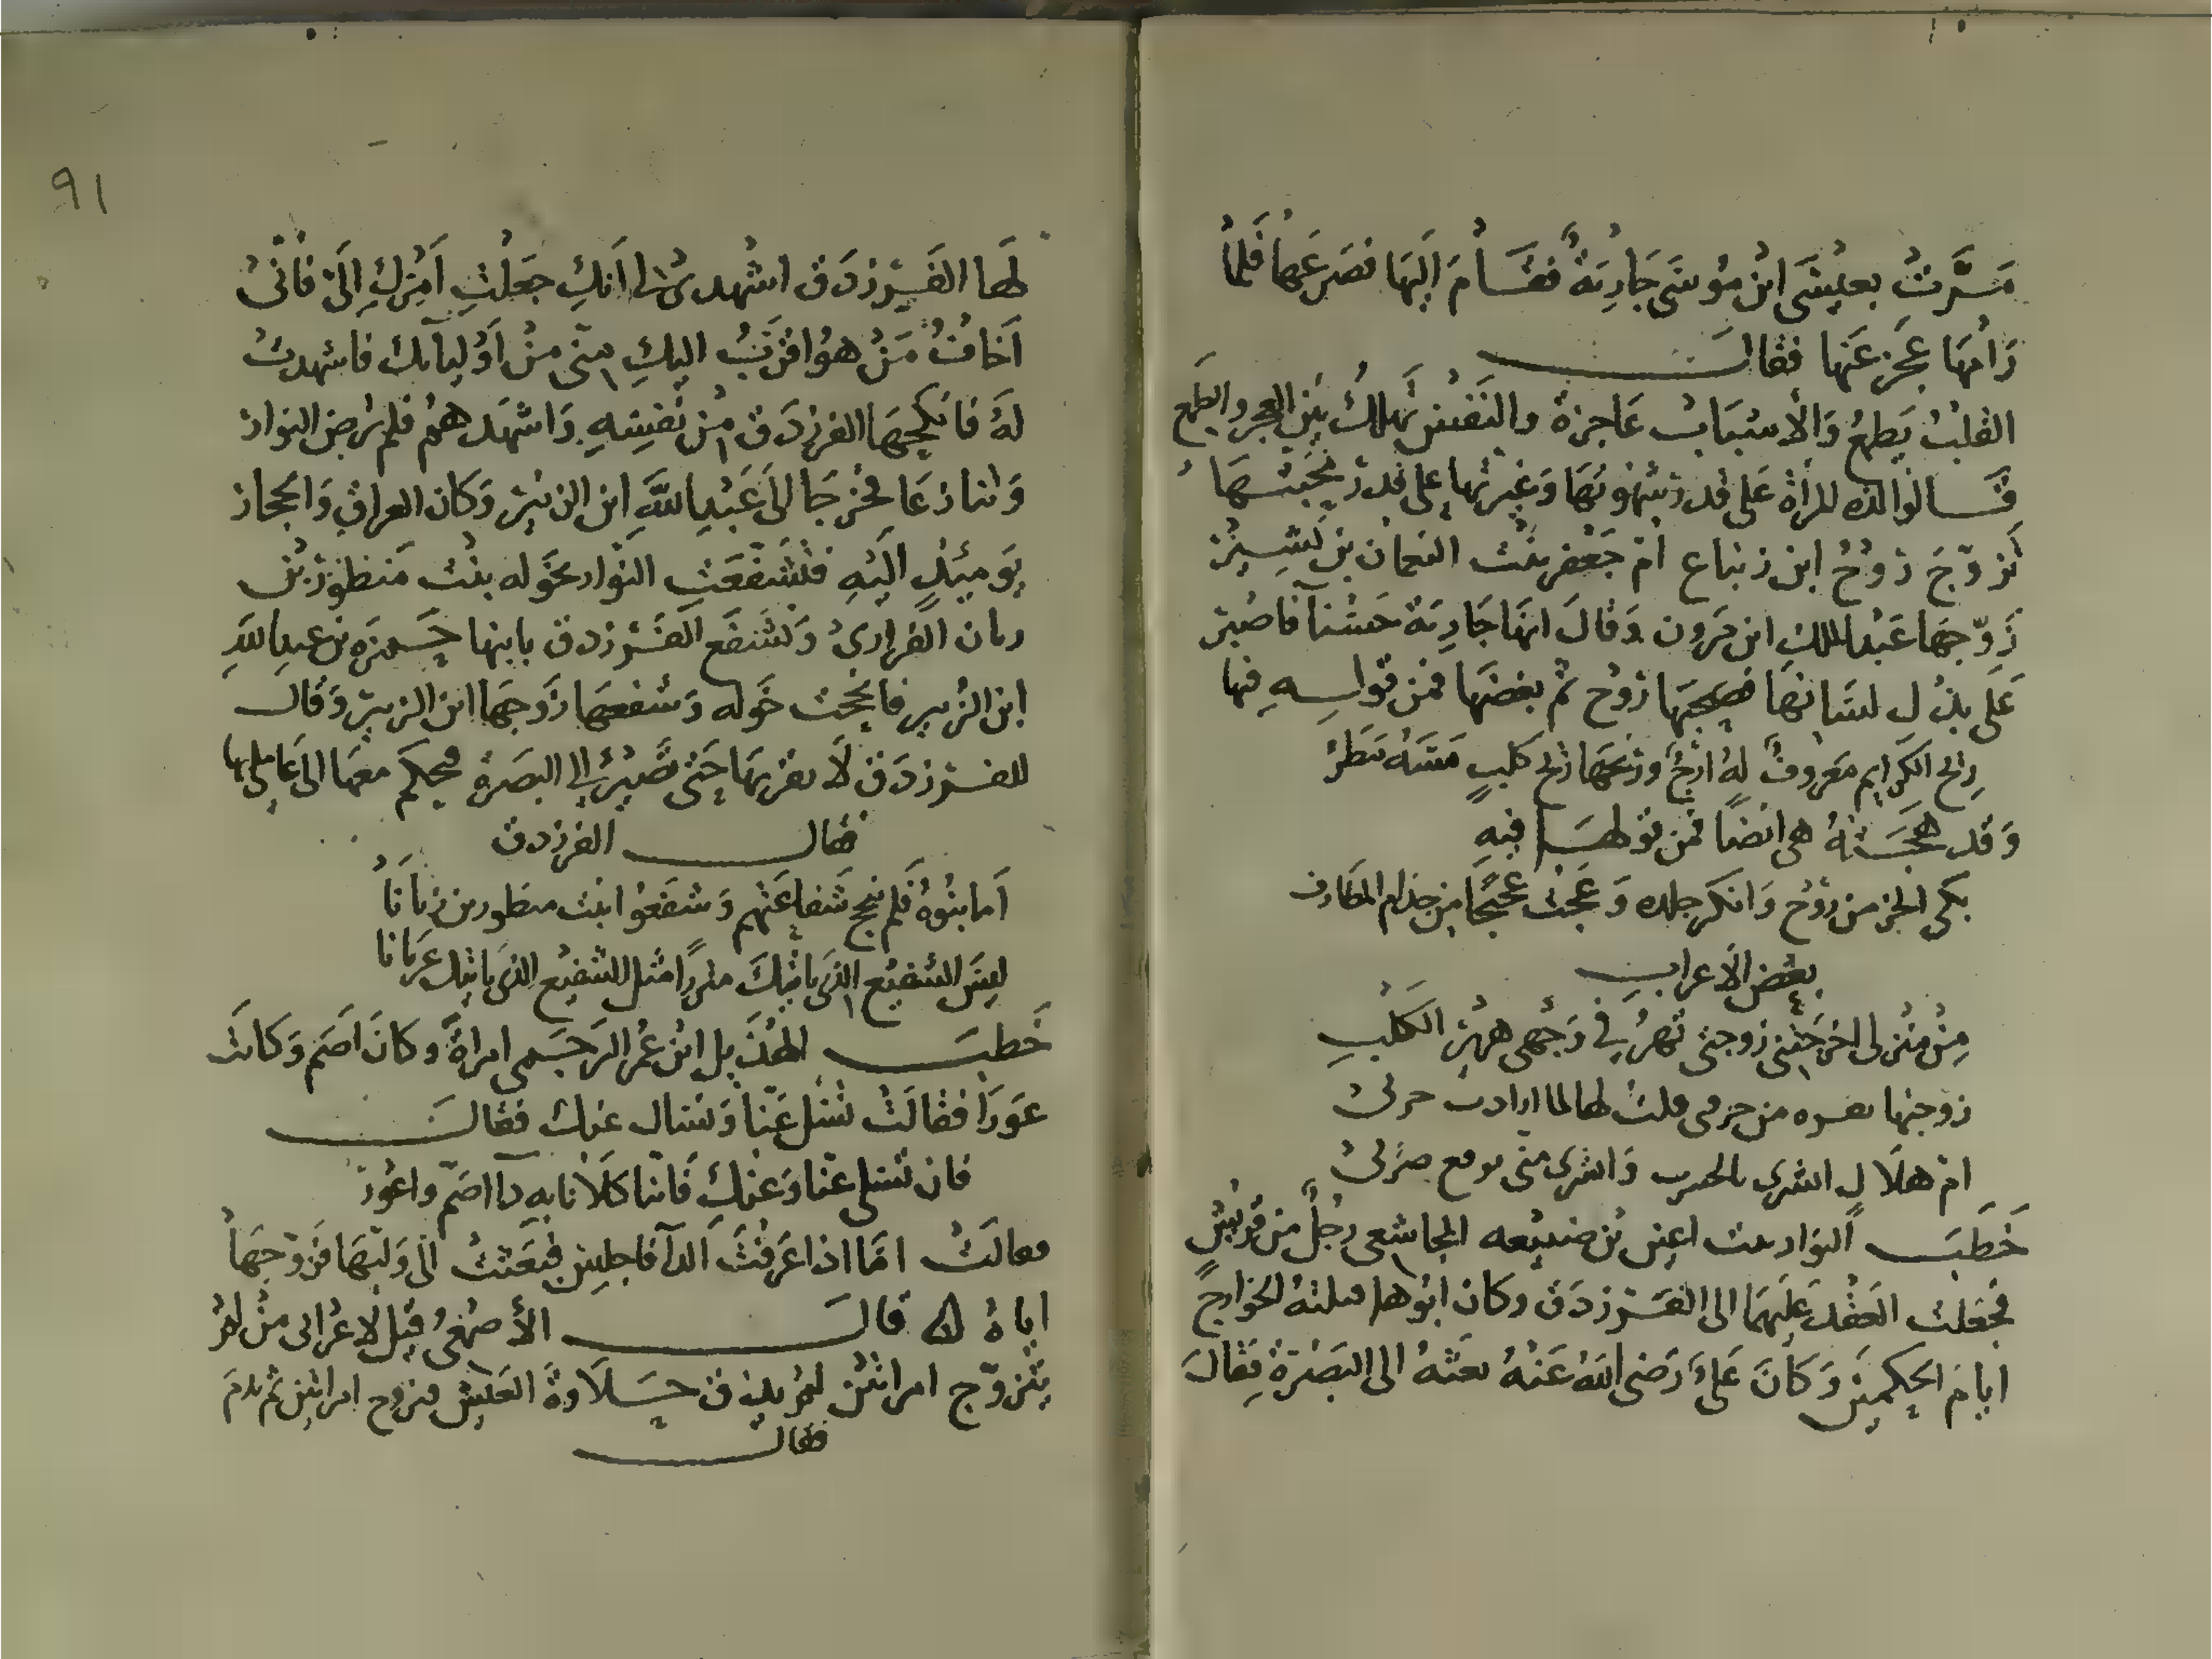 مَرَّتْ بعِيْسَى ابْن مُوسَى جَارِيَةٌ فقَامَ اِلَيهَا فصَرَعَهاَ فَلمَّا
رَامهَا عَجَز عَنها فقالَ
القلبُ يَطمعُ وَالأسْبَابُ عَاجزة والنَفسُ تهلكُ بَين العجز والطمع
قَالوا لذه المرأة عَلى قدر شهوتهَا وَغيرتها على قدر محبتهَا
تَزوّجَ رَوْحُ ابن زنباع امَّ جَعْفر بنْت النعمان بن بَشِيرْ
زَوّجهَا عَبْد الملكِ ابن مَرون وَقالَ انهَا جَارِيَة حَسْنآ فاصْبر
عَلَى بذْل لسَانهَا فصَحِبَهَا رَوْح ثمَّ بغضهَا فمن قوله فيها
رِيْح الكرايم مَعروفٌ لهُ ارَجٌ وَريحُهَا رِيْح كلبٍ مَسَّهُ مَطرُ
وَقد هَجَتْهُ هى ايضًا فمن قولهَا فيهِ
بَكى الخز من رَوْح وَانكر جلده وَعَجت عجيجًا من جذام المطارف
بعْض الأعرابِ
مِنْ مَنْزلى اخرَجَتْنِي زوجتى تهرُّ فِي وَجْهى هَرِيْرَ الكَلْبِ
زوجتها فقيره من حرفى قلتُ لها لما ارادت حربى
امّ هلال ابشرى بالحرب وَابشرى منى بوقع ضَرْبى
خَطَبَ النوار بنت اعيَن بْن ضبيْعه المجاشعى رجُلٌ من قريْشٍ
فجعَلت العَقْد عَلِيهَا الى الفَرَزْدَق وكان ابُوها قتلتهُ الخوارجُ
ايامَ الحكمين وَكانَ عَلىٌ رَضى الله عَنهُ بعَثهُ الى البَصْرَة فقالَ
٩١
لَها الفَرزدَق اشهدى لى انكِ جَعَلتِ اَمْركِ اِلَىّ فانىْ
اَخافُ مَنْ هوُ اقرَبُ اليكِ منّى منْ اَوْليآئك فاشهدتْ
لهُ فانكحَهَا الفرزدَق من نَفسِهِ وَاشهَدهمْ فلم تَرض النوارْ
وَتنازعَا فخرجَا الىَ عَبْدِ اللَّهِ ابن الزبَيْر وَكان العراق وَالحجاز
يَومَئذٍ اليْهِ فتَشَفّعَتِ النَوار بخَوله بنْت مَنظورْ بْن
زبان الفَزارىْ وَتشفعَ الفَرزدق بابنها حَمزَه بن عبد اللَّهِ
ابن الزُبير فانجَحت خَوله وَشفعهَا زَوجهَا ابن الزبير وَقالَ
للفرزدَق لَا تقربهَا حَتى تَصِيْرُ الى البصَرة فيحكم معهَا الى عَامِلِها
فقال الفرزدق
اَما بنُوهُ فَلم تنجح شَفاعَتهم وَشفَعوْا بنْت منظور بن زباناَ
ليسَ الشفيْع الذى ياتيْكَ متزِرًا مثل الشفيْع الذى ياتيْك عَرْيانا
خَطبَ الهذَيل ابْن عُمر الرحَبى امراةً وكانَ اَصَم وَكانَت
عَورَا فقالَتْ تسْئل عَنّا وَنسْال عَنْك فقالَ
فان تَسْئلى عَنّا وَعنْكِ فَاننا كلَانا بهِ دآ اصَمّ واعوُر
فقالَتْ امّا اذا عَرَفتَ الدآ فاجلِسْ فبَعَثتْ الى وَليّهَا فزَوّجَهاَ
اياهُ قالَ الأصْمَعىُ قيْل لاعْرابى مَنْ لمْ
يَتزوّج امراتيْن لمْ يذق حَلَاوة العيْش فتزوج امراتيْن ثم ندمَ
فقال